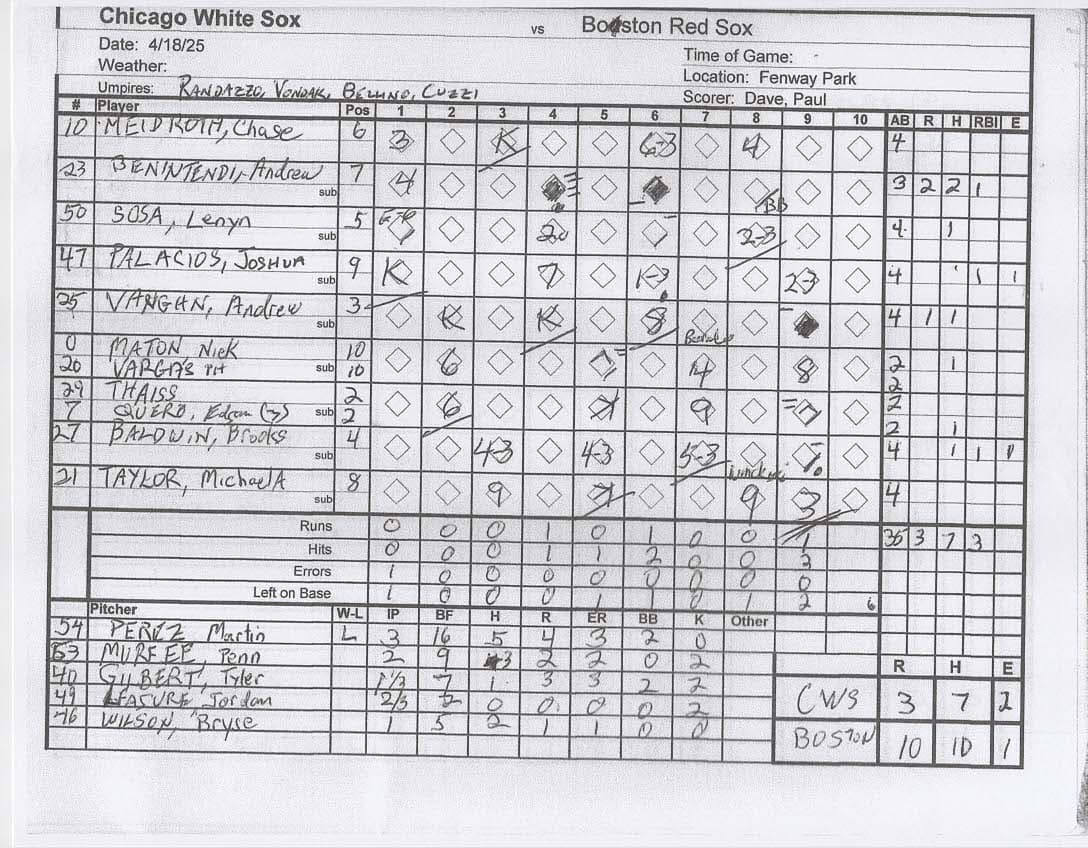 Chicago White Sox vs Boston Red Sox
Date: 4/18/25
Time of Game: -
Weather:
Location: Fenway Park
Umpires: RANDAZZO, VONDAK, BELLINO, CUZZI
Scorer: Dave, Paul
# Player Pos 1 2 3 4 5 6 7 8 9 10 AB R H RBI E
10 MEIDROTH, Chase 6 3 K 6-3 4 4
23 BENINTENDI, Andrew 7 4 BB 3 2 2 1
sub
50 SOSA, Lenyn 5 2-3 4 1
sub
47 PALACIOS, JOSHUA 9 K 7 1-3 2-3 4 1 1
sub
25 VAUGHN, Andrew 3 K K 8 4 1 1
sub
0 MATON, Nick 10 6 7 4 8 2 1
20 VARGAS PH sub 10 2
29 THAISS 2 6 7 9 7 2
7 QUERO, Edgar sub 2 2 1
27 BALDWIN, Brooks 4 4-3 4-3 5-3 7 4 1 1 1
sub
21 TAYLOR, Michael A 8 9 7 9 3 4
sub
Runs 0 0 0 1 0 1 0 0 1 35 3 7 3
Hits 0 0 0 1 1 2 0 0 3
Errors 1 0 0 0 0 0 0 0 0
Left on Base 1 0 0 0 1 1 0 1 2 6
Pitcher W-L IP BF H R ER BB K Other
54 PEREZ Martin L 3 16 5 4 3 2 0
53 MURFEE, Penn 2 9 3 2 2 0 2
40 GILBERT, Tyler 1 1/3 7 1 3 3 2 2
49 LEASURE Jordan 2/3 2 0 0 0 0 2
46 WILSON, Bryse 1 5 2 1 1 0 0
R H E
CWS 3 7 2
BOSTON 10 10 1